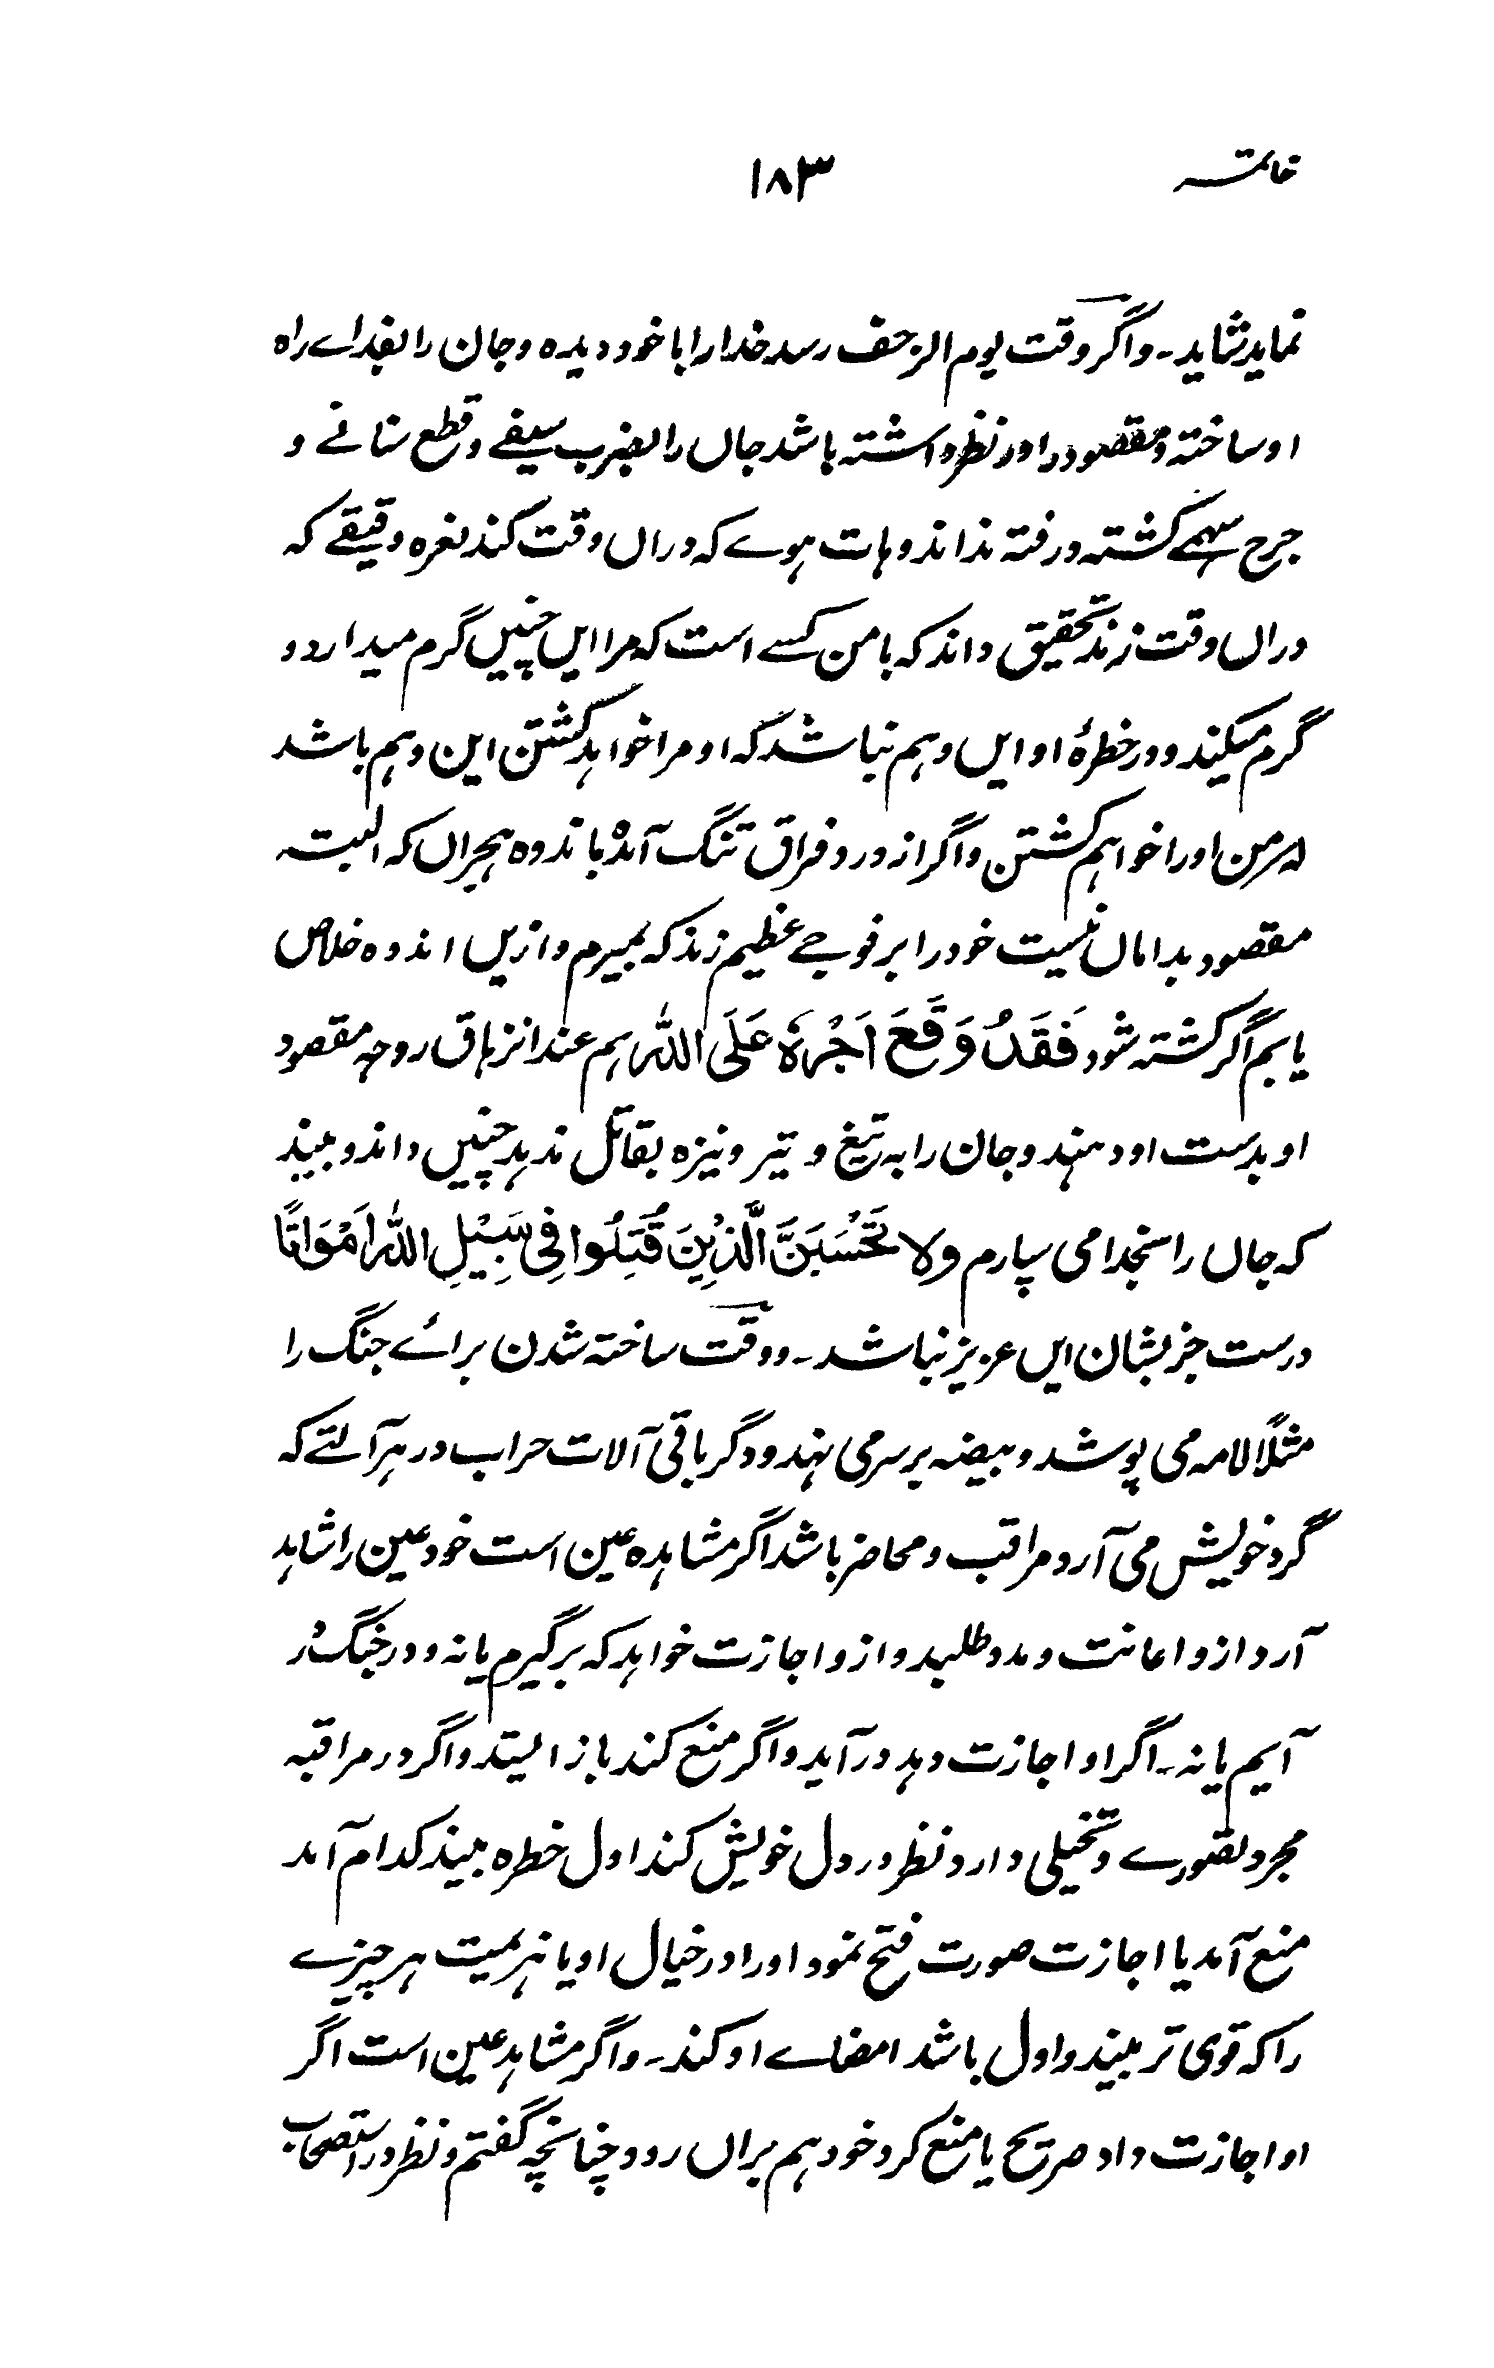 خاتمہ ۱۸۳
نماید شاید۔ و اگر وقت یوم الزحف رسد خدارا با خود دیده و جان را بفداے راه
او ساخته و مقصود را در نظر داشته باشد جاں را بضرب سیفے و قطع سنانے و
جرح سہمے کشته و رفته نداند و ہات ہوے که دراں وقت کند نعره و قیقے که
دراں وقت زند تحقیق داند که با من کسے است که مرا ایں چنیں گرم میدارد و
گرم میکند و در خطرهٔ او ایں وہم نباشد که او مرا خواہد کشتن این وہم باشد
که من او را خواہم کشتن و اگر از درد فراق تنگ آمده باندوه ہجراں که البته
مقصود بداماں نیست خود را بر فوجے عظیم زند که بمیرم و ازیں اندوه خلاص
یابم اگر کشته شود فَقَدْ وَقَعَ اَجْرُهٗ عَلَی اللّٰه ہم عند انزہاق روحہ مقصود
او بدست او دہند و جان را به تیغ و تیر و نیزه بقاتل ندہد چنیں داند و بیند
که جاں را بخدا می سپارم ولا تَحْسَبَنَّ الَّذِیْنَ قُتِلُوا فِی سَبِیْلِ اللّٰه اَمْوَاتًا
درست جز بشان ایں عزیز نباشد۔ و وقت ساخته شدن براے جنگ را
مثلاً لامه می پوشد و بیضه بر سر می نہد و دگر باقی آلات حراب در ہر آلتے که
گرد خویش می آرد مراقب و محاضر باشد اگر مشاہده عین است خود عین را شاہد
آرد ازو اعانت و مدد طلبد و ازو اجازت خواہد که برگیرم یا نه و در جنگ در
آیم یا نه۔ اگر او اجازت دہد در آید و اگر منع کند باز ایستد و اگر در مراقبه
مجرد تصورے و تخیلی دارد نظر در دل خویش کند اول خطره بیند کدام آمد
منع آمد یا اجازت صورت فتح نمود او را در خیال او یا ہزیمیت ہر چیزے
را که قوی تر بیند و اول باشد امضاے او کند۔ و اگر مشاہد عین است اگر
او اجازت داد صریح یا منع کرد خود ہم براں رود چنانچہ گفتم و نظر در استصحاب